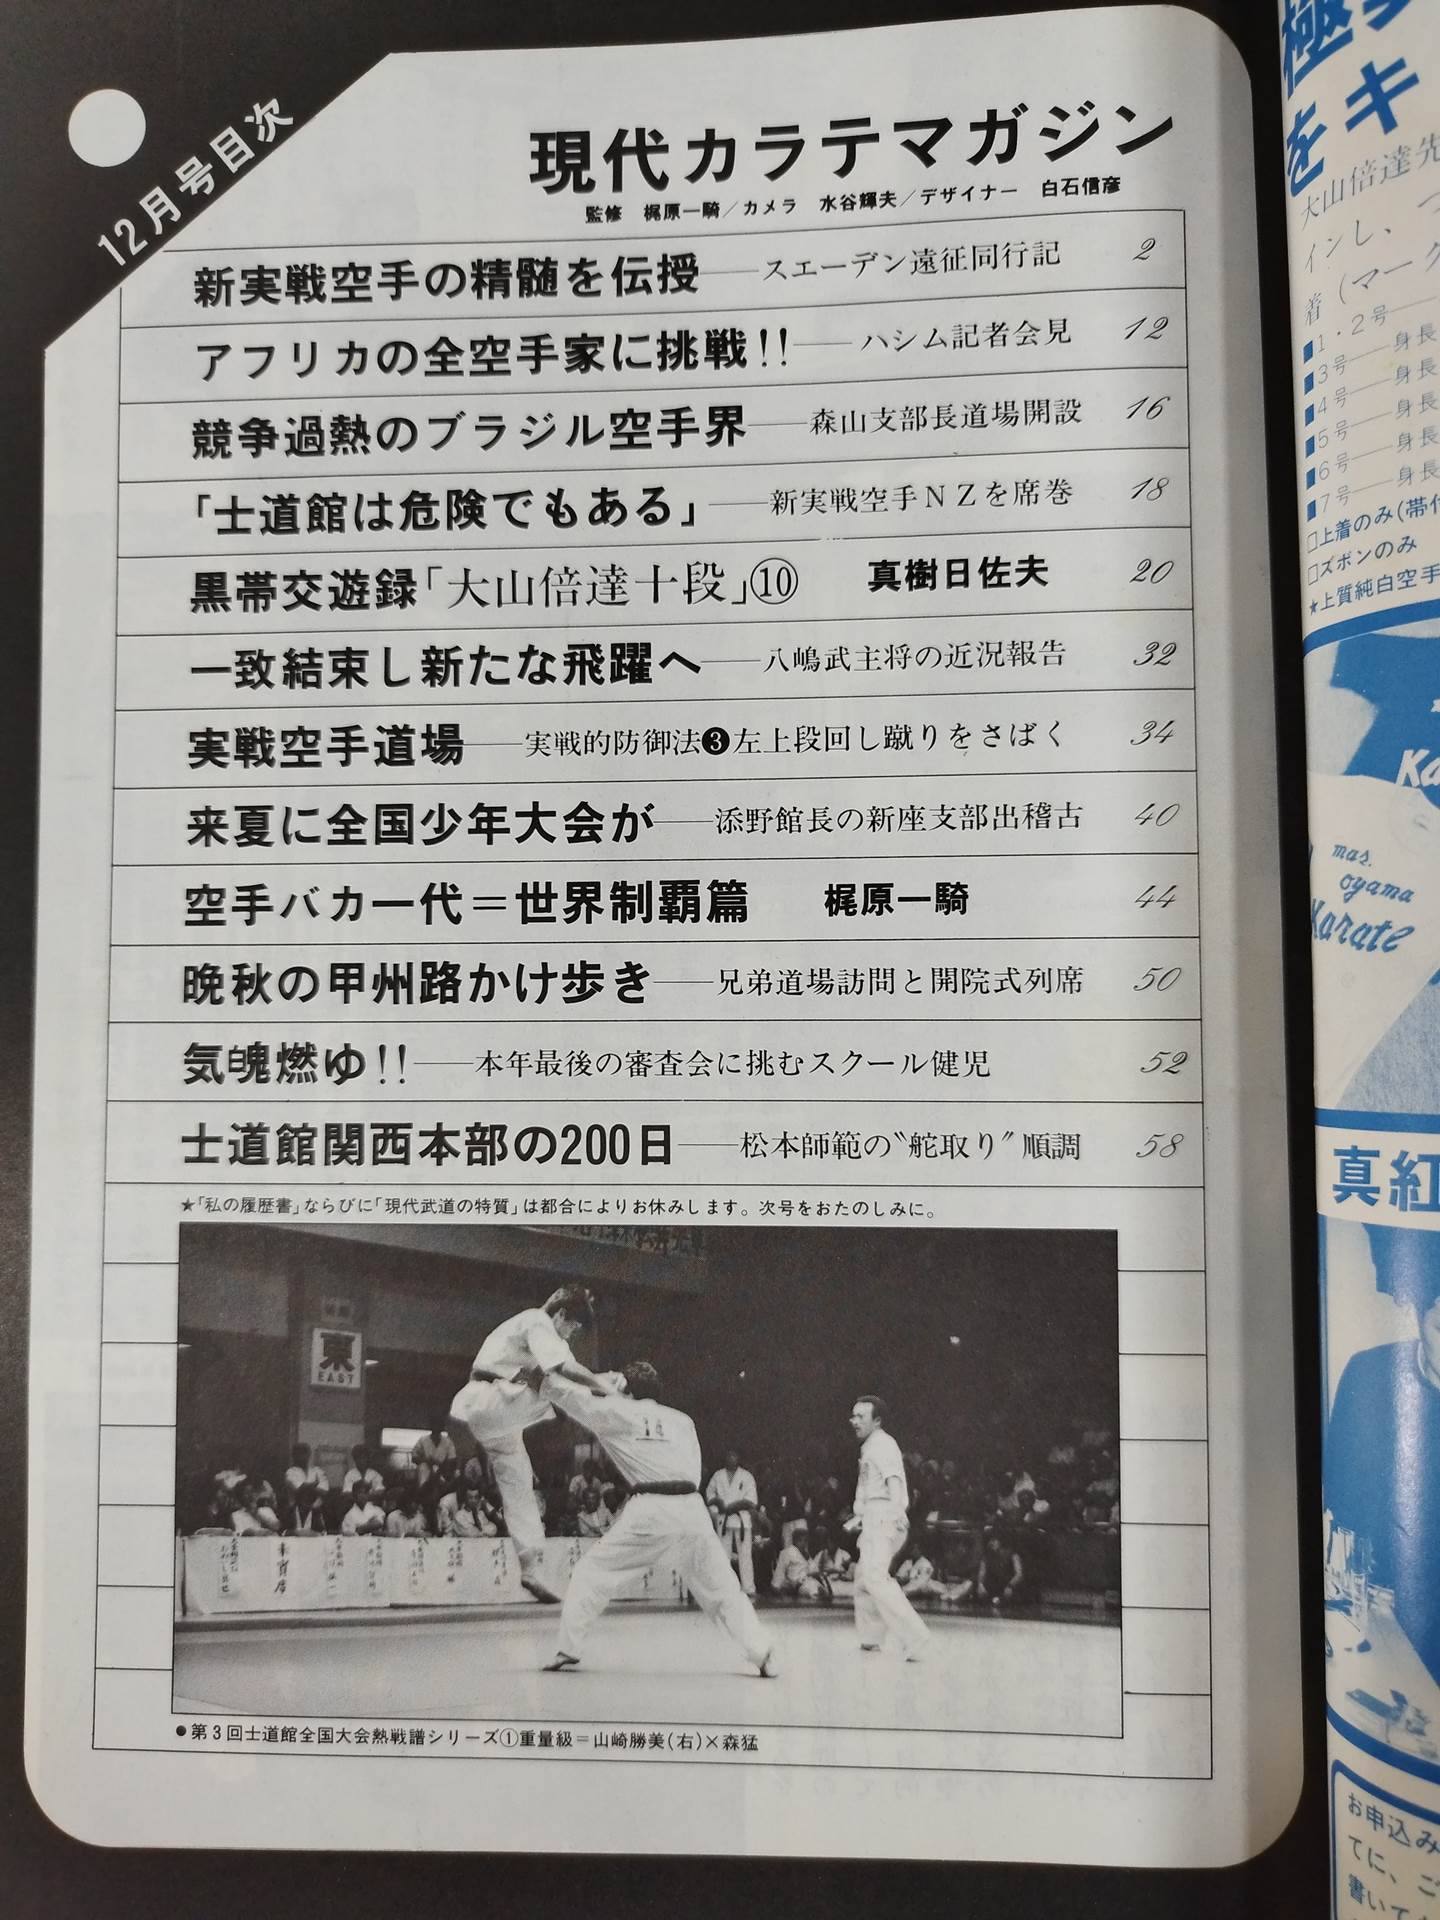 12月号目次
現代カラテマガジン
監修 梶原一騎／カメラ 水谷輝夫／デザイナー 白石信彦
新実戦空手の精髄を伝授──スエーデン遠征同行記 2
アフリカの全空手家に挑戦!!──ハシム記者会見 12
競争過熱のブラジル空手界──森山支部長道場開設 16
「士道館は危険でもある」──新実戦空手NZを席巻 18
黒帯交遊録「大山倍達十段」⑩ 真樹日佐夫 20
一致結束し新たな飛躍へ──八嶋武主将の近況報告 32
実戦空手道場──実戦的防御法❸左上段回し蹴りをさばく 34
来夏に全国少年大会が──添野館長の新座支部出稽古 40
空手バカ一代＝世界制覇篇 梶原一騎 44
晩秋の甲州路かけ歩き──兄弟道場訪問と開院式列席 50
気魄燃ゆ!!──本年最後の審査会に挑むスクール健児 52
士道館関西本部の200日──松本師範の〝舵取り〟順調 58
★「私の履歴書」ならびに「現代武道の特質」は都合によりお休みします。次号をおたのしみに。
東
EAST
14
来賓席
●第3回士道館全国大会熱戦譜シリーズ①重量級＝山崎勝美(右)×森猛
極真
をキ
大山倍達先
インし、
着（マーク
■1・2号──
■3号──身長
■4号──身長
■5号──身長
■6号──身長
■7号──身長
□上着のみ(帯付
□ズボンのみ
★上質純白空手
Ka
mas.
oyama
Karate
真紅
お申込み
てに、ご
書いて